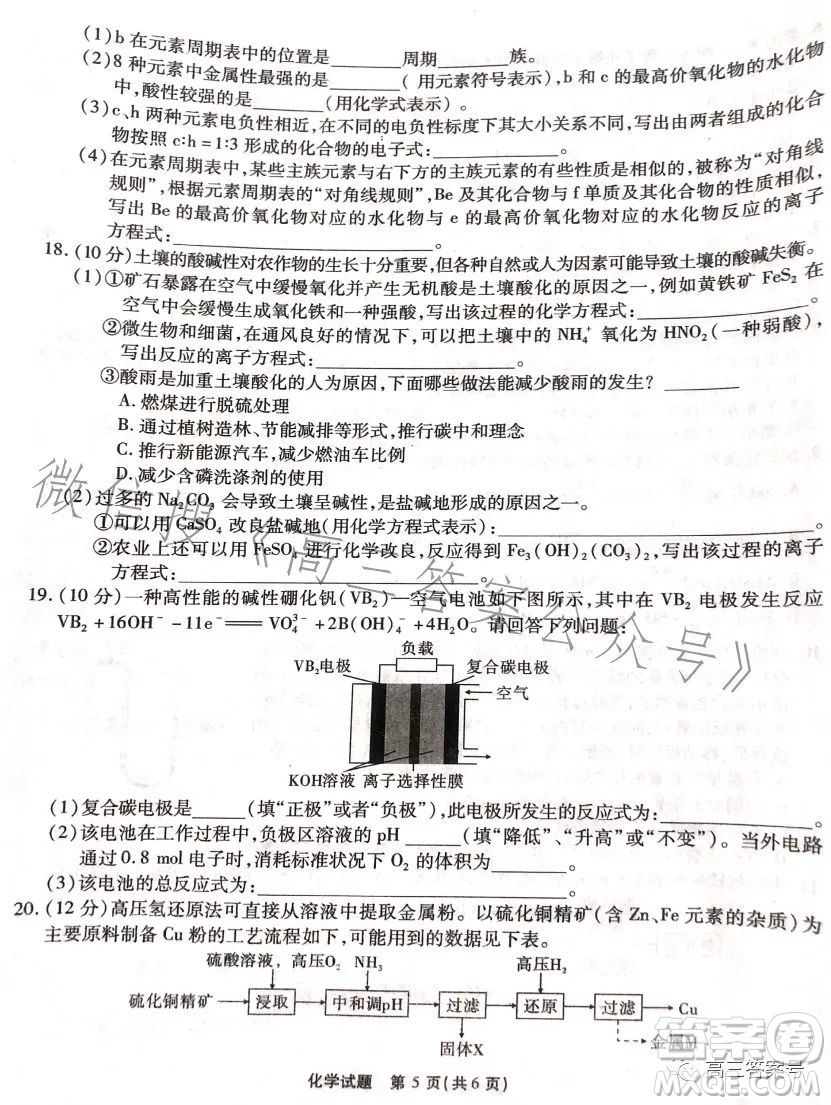 (1)b在元素周期表中的位置是______周期______族。
(2)8种元素中金属性最强的是______(用元素符号表示),b和c的最高价氧化物的水化物
中,酸性较强的是______(用化学式表示)。
(3)c、h两种元素电负性相近,在不同的电负性标度下其大小关系不同,写出由两者组成的化合
物按照c:h=1:3形成的化合物的电子式:______。
(4)在元素周期表中,某些主族元素与右下方的主族元素的有些性质是相似的,被称为“对角线
规则”,根据元素周期表的“对角线规则”,Be及其化合物与f单质及其化合物的性质相似,
写出Be的最高价氧化物对应的水化物与e的最高价氧化物对应的水化物反应的离子
方程式:______。
18.(10分)土壤的酸碱性对农作物的生长十分重要,但各种自然或人为因素可能导致土壤的酸碱失衡。
(1)①矿石暴露在空气中缓慢氧化并产生无机酸是土壤酸化的原因之一,例如黄铁矿FeS₂在
空气中会缓慢生成氧化铁和一种强酸,写出该过程的化学方程式:______。
②微生物和细菌,在通风良好的情况下,可以把土壤中的NH₄⁺氧化为HNO₂(一种弱酸),
写出反应的离子方程式:______。
③酸雨是加重土壤酸化的人为原因,下面哪些做法能减少酸雨的发生?______
A.燃煤进行脱硫处理
B.通过植树造林、节能减排等形式,推行碳中和理念
C.推行新能源汽车,减少燃油车比例
D.减少含磷洗涤剂的使用
(2)过多的Na₂CO₃会导致土壤呈碱性,是盐碱地形成的原因之一。
①可以用CaSO₄改良盐碱地(用化学方程式表示):______。
②农业上还可以用FeSO₄进行化学改良,反应得到Fe₃(OH)₂(CO₃)₂,写出该过程的离子
方程式:______。
19.(10分)一种高性能的碱性硼化钒(VB₂)—空气电池如下图所示,其中在VB₂电极发生反应
VB₂+16OH⁻-11e⁻══VO₄³⁻+2B(OH)₄⁻+4H₂O。请回答下列问题:
负载
VB₂电极 复合碳电极
空气
KOH溶液 离子选择性膜
(1)复合碳电极是______(填“正极”或者“负极”),此电极所发生的反应式为:______。
(2)该电池在工作过程中,负极区溶液的pH______(填“降低”、“升高”或“不变”)。当外电路
通过0.8 mol电子时,消耗标准状况下O₂的体积为______。
(3)该电池的总反应式为:______。
20.(12分)高压氢还原法可直接从溶液中提取金属粉。以硫化铜精矿(含Zn、Fe元素的杂质)为
主要原料制备Cu粉的工艺流程如下,可能用到的数据见下表。
硫酸溶液,高压O₂ NH₃ 高压H₂
硫化铜精矿 浸取 中和调pH 过滤 还原 过滤 Cu
固体X 金属M
化学试题 第5页(共6页)
微信搜《高三答案公众号》
高三答案号
答案圈
MXQE.COM